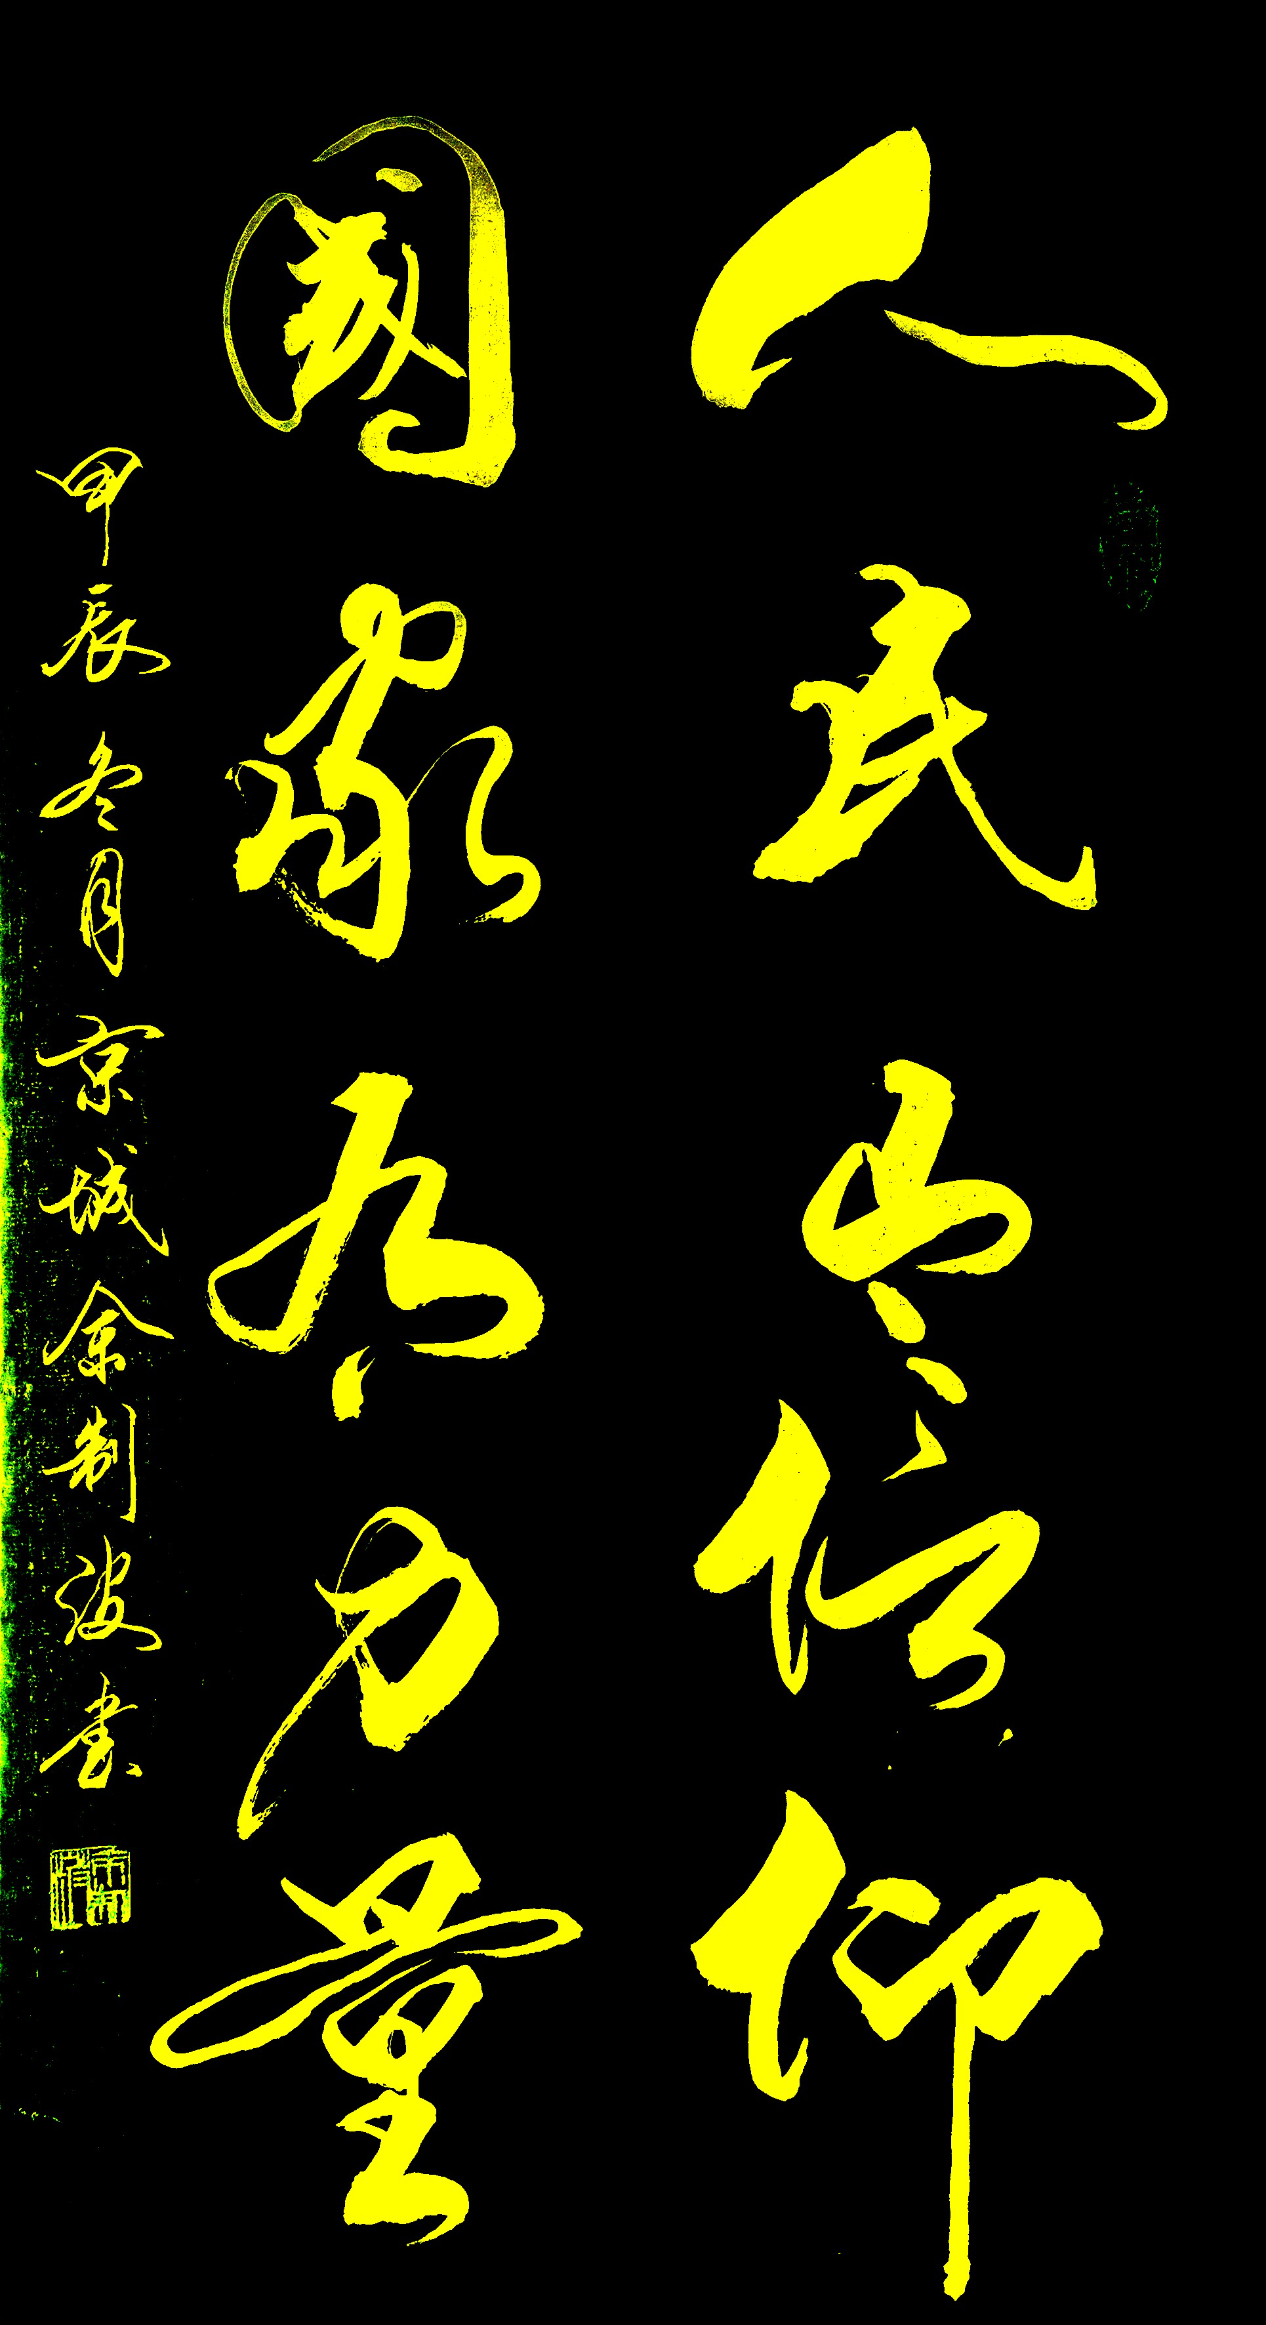 人民有信仰
國家有力量
甲辰冬月京城余制波書